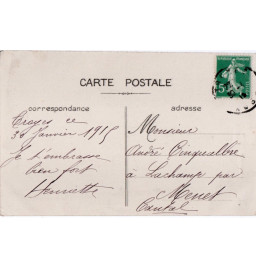 CARTE POSTALE
correspondance
adresse
Troyes ce
3 Janvier 1915
Je t'embrasse
bien fort
Henriette
Monsieur
André
à Lachamp par
Menet
Cantal
5